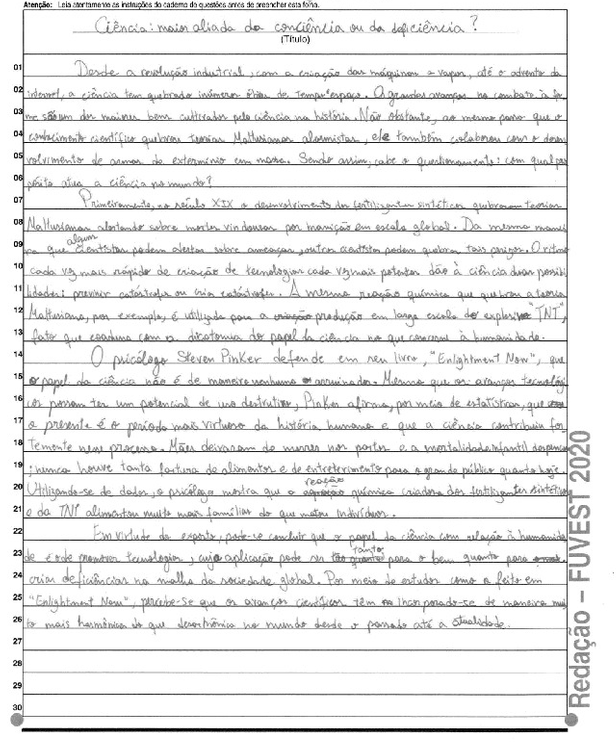 Atenção: Leia atentamente as instruções do caderno de questões antes de preencher esta folha.
Ciência: maior aliada da conciência ou da deficiência?
(Título)
01 Desde a revolução industrial, com a criação das máquinas a vapor, até o advento da
02 internet, a ciência tem quebrado inúmeros de tempo/espaço. Os grandes avanços no combate à fo
03 me são um dos maiores bens cultivados pela ciência na história. Não obstante, ao mesmo passo que o
04 conhecimento científico quebrou teorias Maltusianas alarmistas, ele também colaborou com o desen
05 volvimento de armas de extermínio em massa. Sendo assim, cabe o questionamento: com qual pro
06 pósito atua a ciência no mundo?
07 Primeiramente, no século XIX o desenvolvimento dos fertilizantes sintéticos quebraram teorias
08 Maltusianas alertando sobre mortes vindouras por inanição em escala global. Da mesma manei
09 ra que algum cientistas podem alertar sobre ameaças, outros cientistas podem quebrar tais perigos. O ritmo
10 cada vez mais rápido de criação de tecnologias cada vez mais potentes dão à ciência duas possibi
11 lidades: previnir catástrofes ou cria catástrofes. A mesma reação química que quebrou a teoria
12 Maltusiana, por exemplo, é utilizada para a produção em larga escala do explosivo "TNT",
13 fato que coaduna com a dicotomia do papel da ciência no que concerne à humanidade.
14 O psicólogo Steven Pinker defende em seu livro, "Enlightment Now", que
15 o papel da ciência não é de maneira nenhuma o arruinado. Mesmo que os avanços tecnológi
16 cos possam ter um potencial de uso destrutivo, Pinker afirma, por meio de estatísticas, que
17 o presente é o período mais virtuoso da história humana e que a ciência contribuiu for
18 temente nesse processo. Mães deixaram de morrer nos partos e a mortalidade infantil
19 ; nunca houve tanta fartura de alimentos e de entreterimento para o grande público quanto hoje.
20 Utilizando-se de dados, o psicólogo mostra que a reação química criadora dos fertilizantes sintéticos
21 e da TNT alimentou muito mais famílias do que matou indivíduos.
22 Em virtude do exposto, pode-se concluir que o papel da ciência com relação à humanida
23 de é o de promover tecnologias, cuja aplicação pode ser tanto para o bem quanto para
24 criar deficiências na malha da sociedade global. Por meio de estudos como o feito em
25 "Enlightment Now", percebe-se que os avanços científicos têm de maneira mui
26 to mais harmônica do que desarmônica no mundo desde o passado até a atualidade.
27
28
29
30
Redação – FUVEST 2020